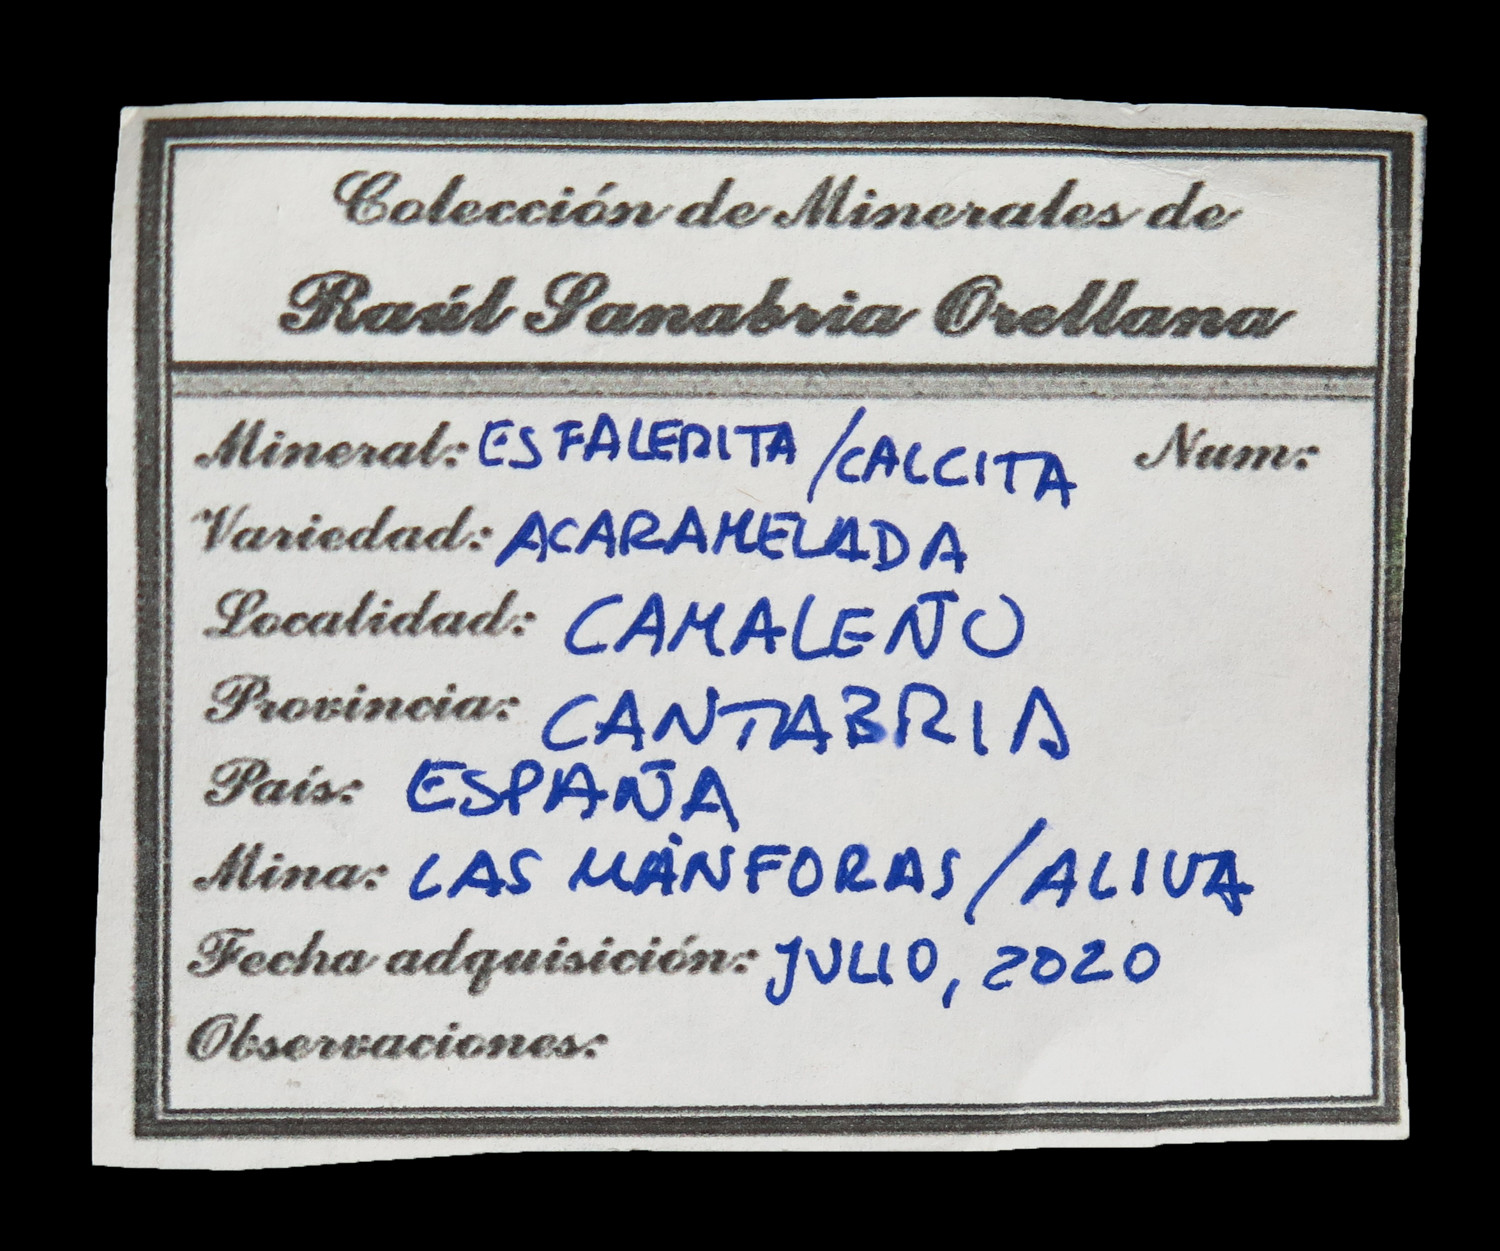 Colección de Minerales de
Raúl Sanabria Orellana
Mineral: ESFALERITA / CALCITA Num:
Variedad: ACARAMELADA
Localidad: CAMALEÑO
Provincia: CANTABRIA
País: ESPAÑA
Mina: LAS MÁNFORAS / ALIVA
Fecha adquisición: JULIO, 2020
Observaciones: